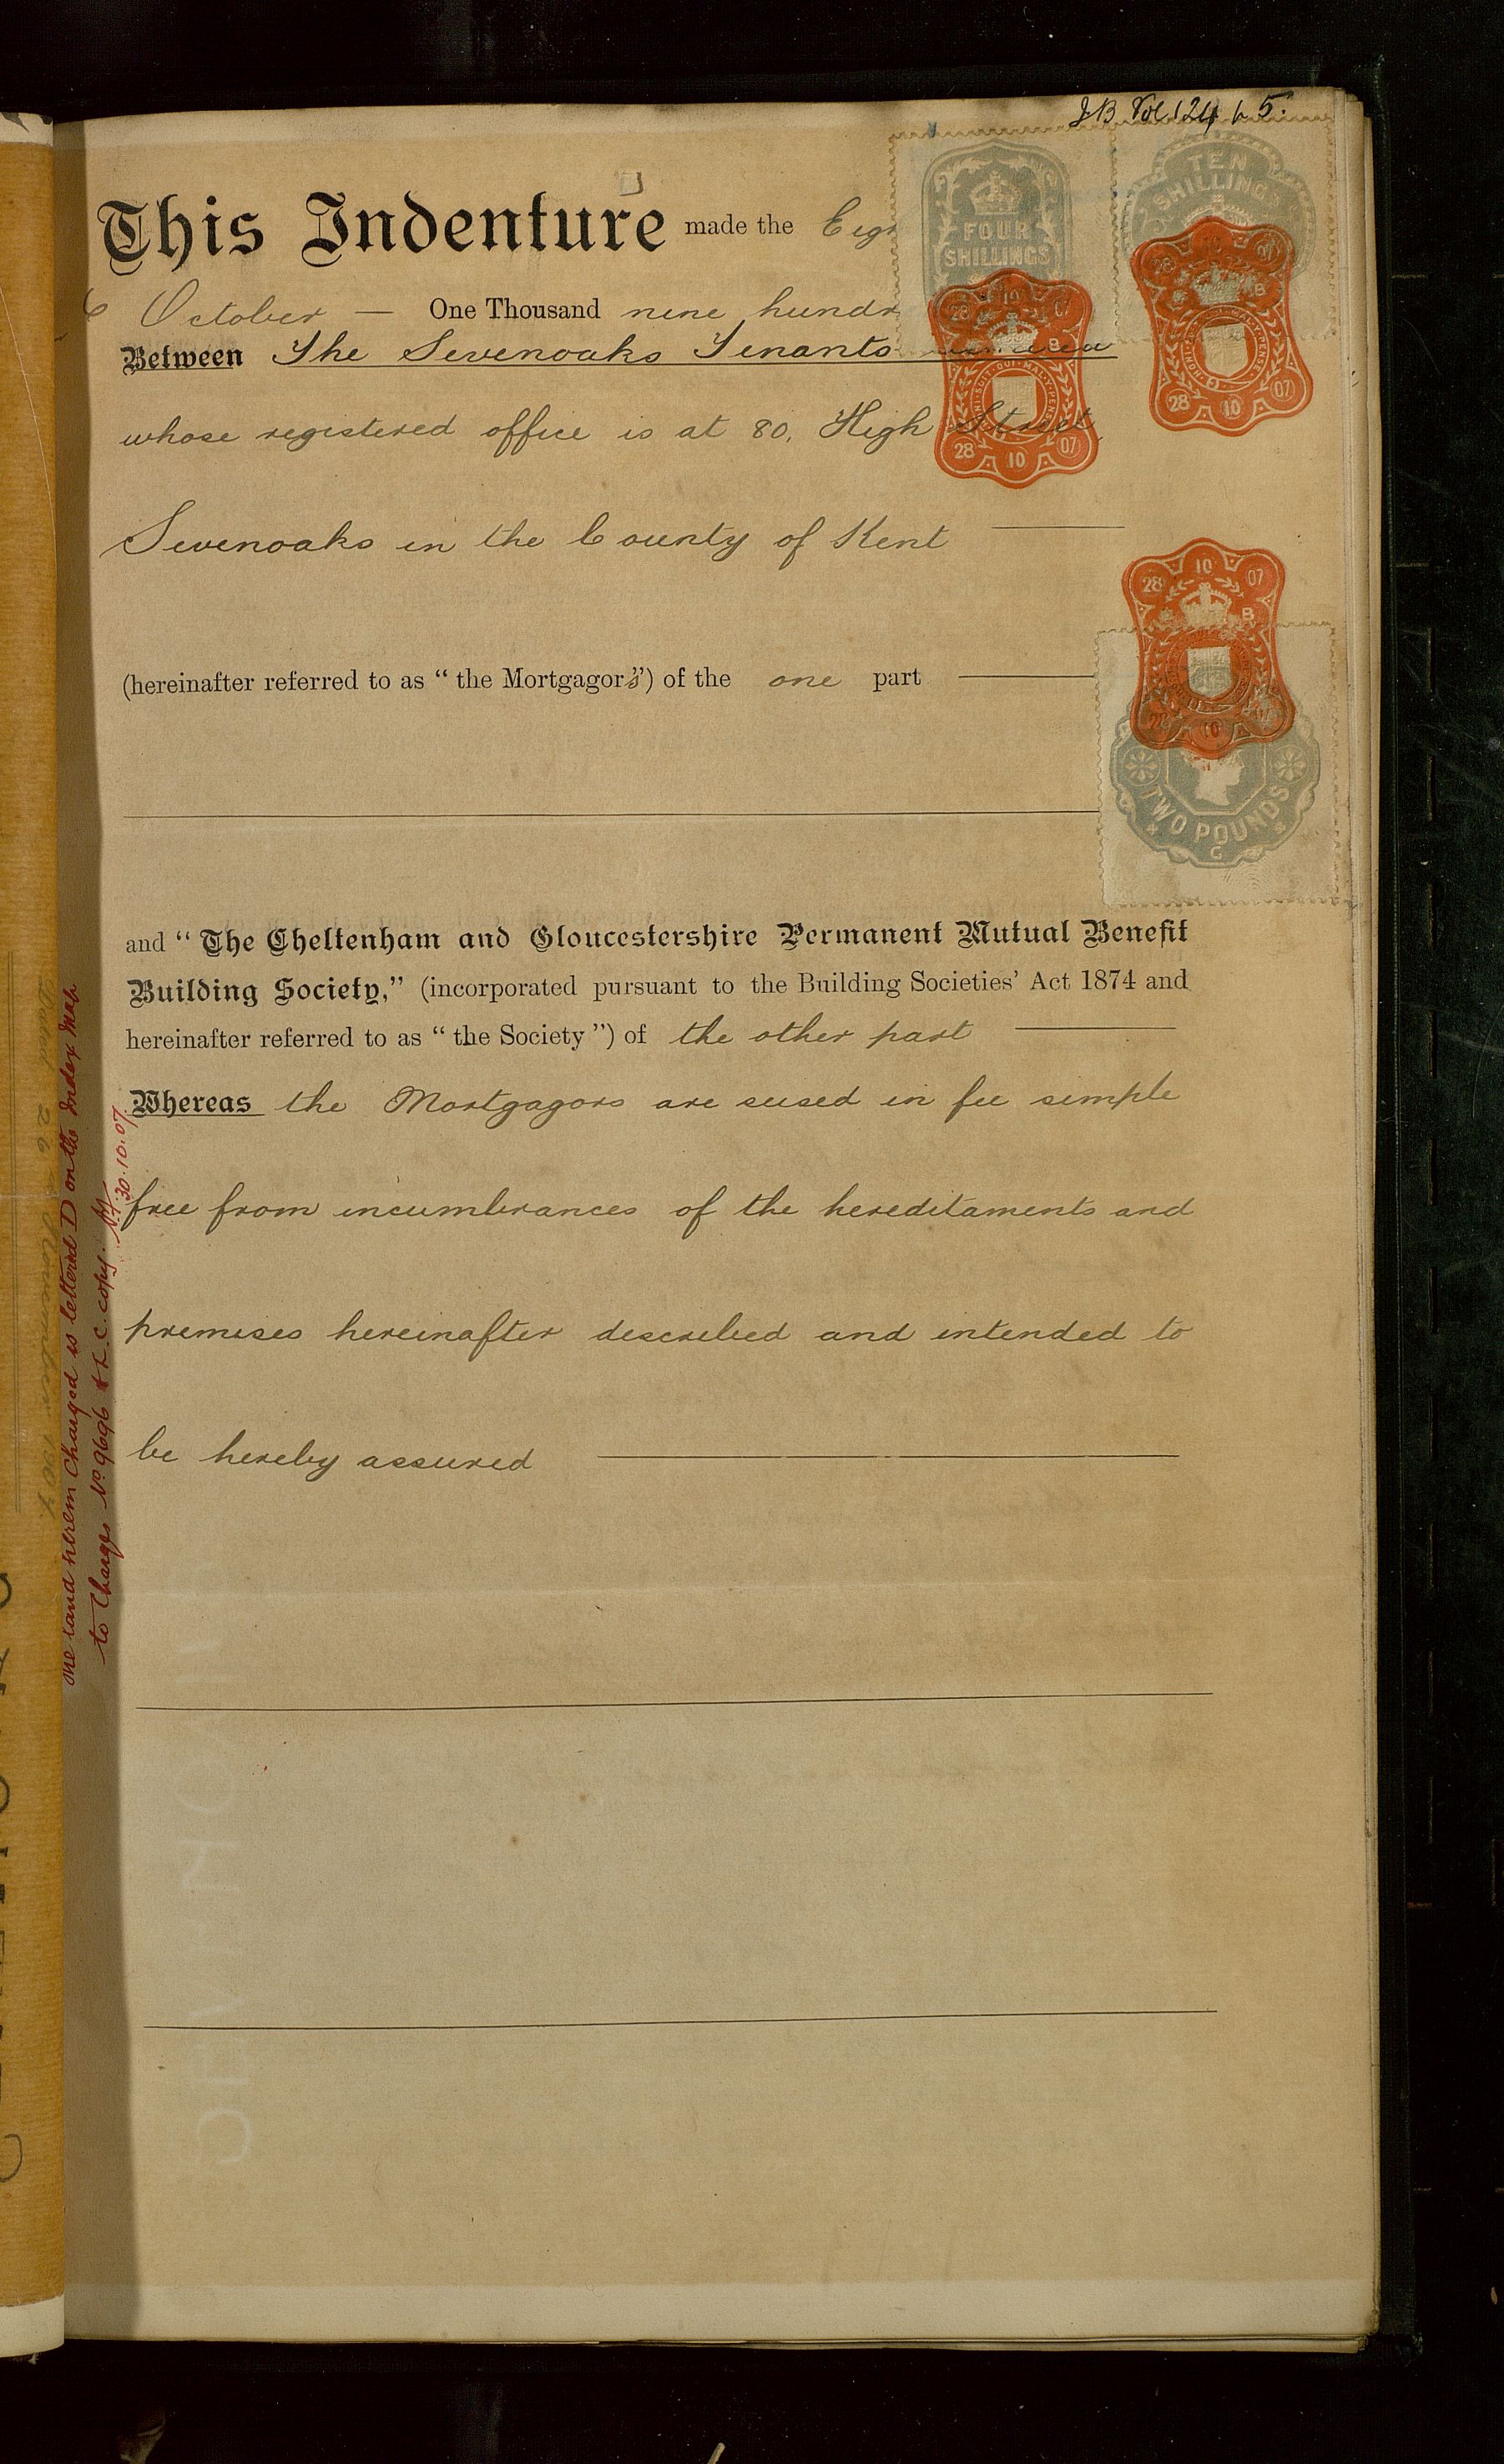 JB Vol 124 p 5.
FOUR
SHILLINGS
TEN
SHILLINGS
This Indenture made the Eigh
October — One Thousand nine hundr
Between The Sevenoaks Tenants
whose registered office is at 80, High Street,
Sevenoaks in the County of Kent
28 10 07
B
28 10 07
28 10 07
B
28 10 07
28 10 07
B
28 10 07
TWO POUNDS
G
(hereinafter referred to as “ the Mortgagors”) of the one part
and “ The Cheltenham and Gloucestershire Permanent Mutual Benefit
Building Society,” (incorporated pursuant to the Building Societies’ Act 1874 and
hereinafter referred to as “ the Society ”) of the other part
Whereas the Mortgagors are seised in fee simple
free from incumbrances of the hereditaments and
premises hereinafter described and intended to
be hereby assured
The land herein Charged is lettered D on the Index Map
to Charge No 9696 & L.C. copy.
30.10.07